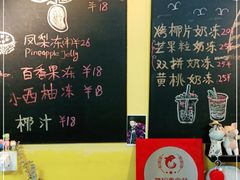 ¥18
凤梨冻 ¥26
Pineapple Jelly
百香果冻 ¥18
小西柚冻 ¥18
椰汁 ¥18
烤椰片奶冻 25
芒果粒奶冻 25
双拼奶冻 29
黄桃奶冻 25